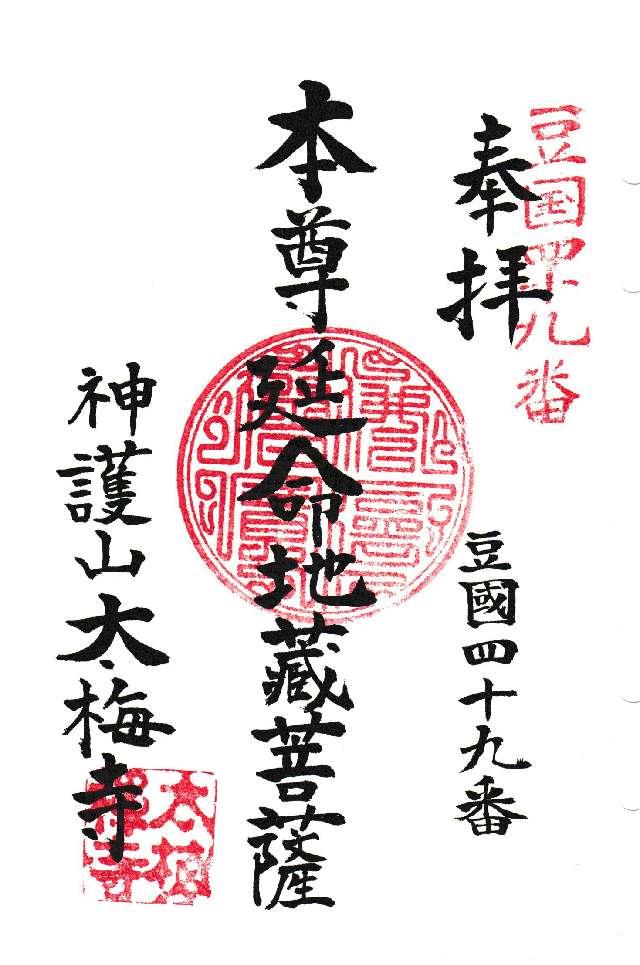 豆国四十九番
奉拝
豆國四十九番
本尊延命地藏菩薩
神護山太梅寺
太梅禅寺